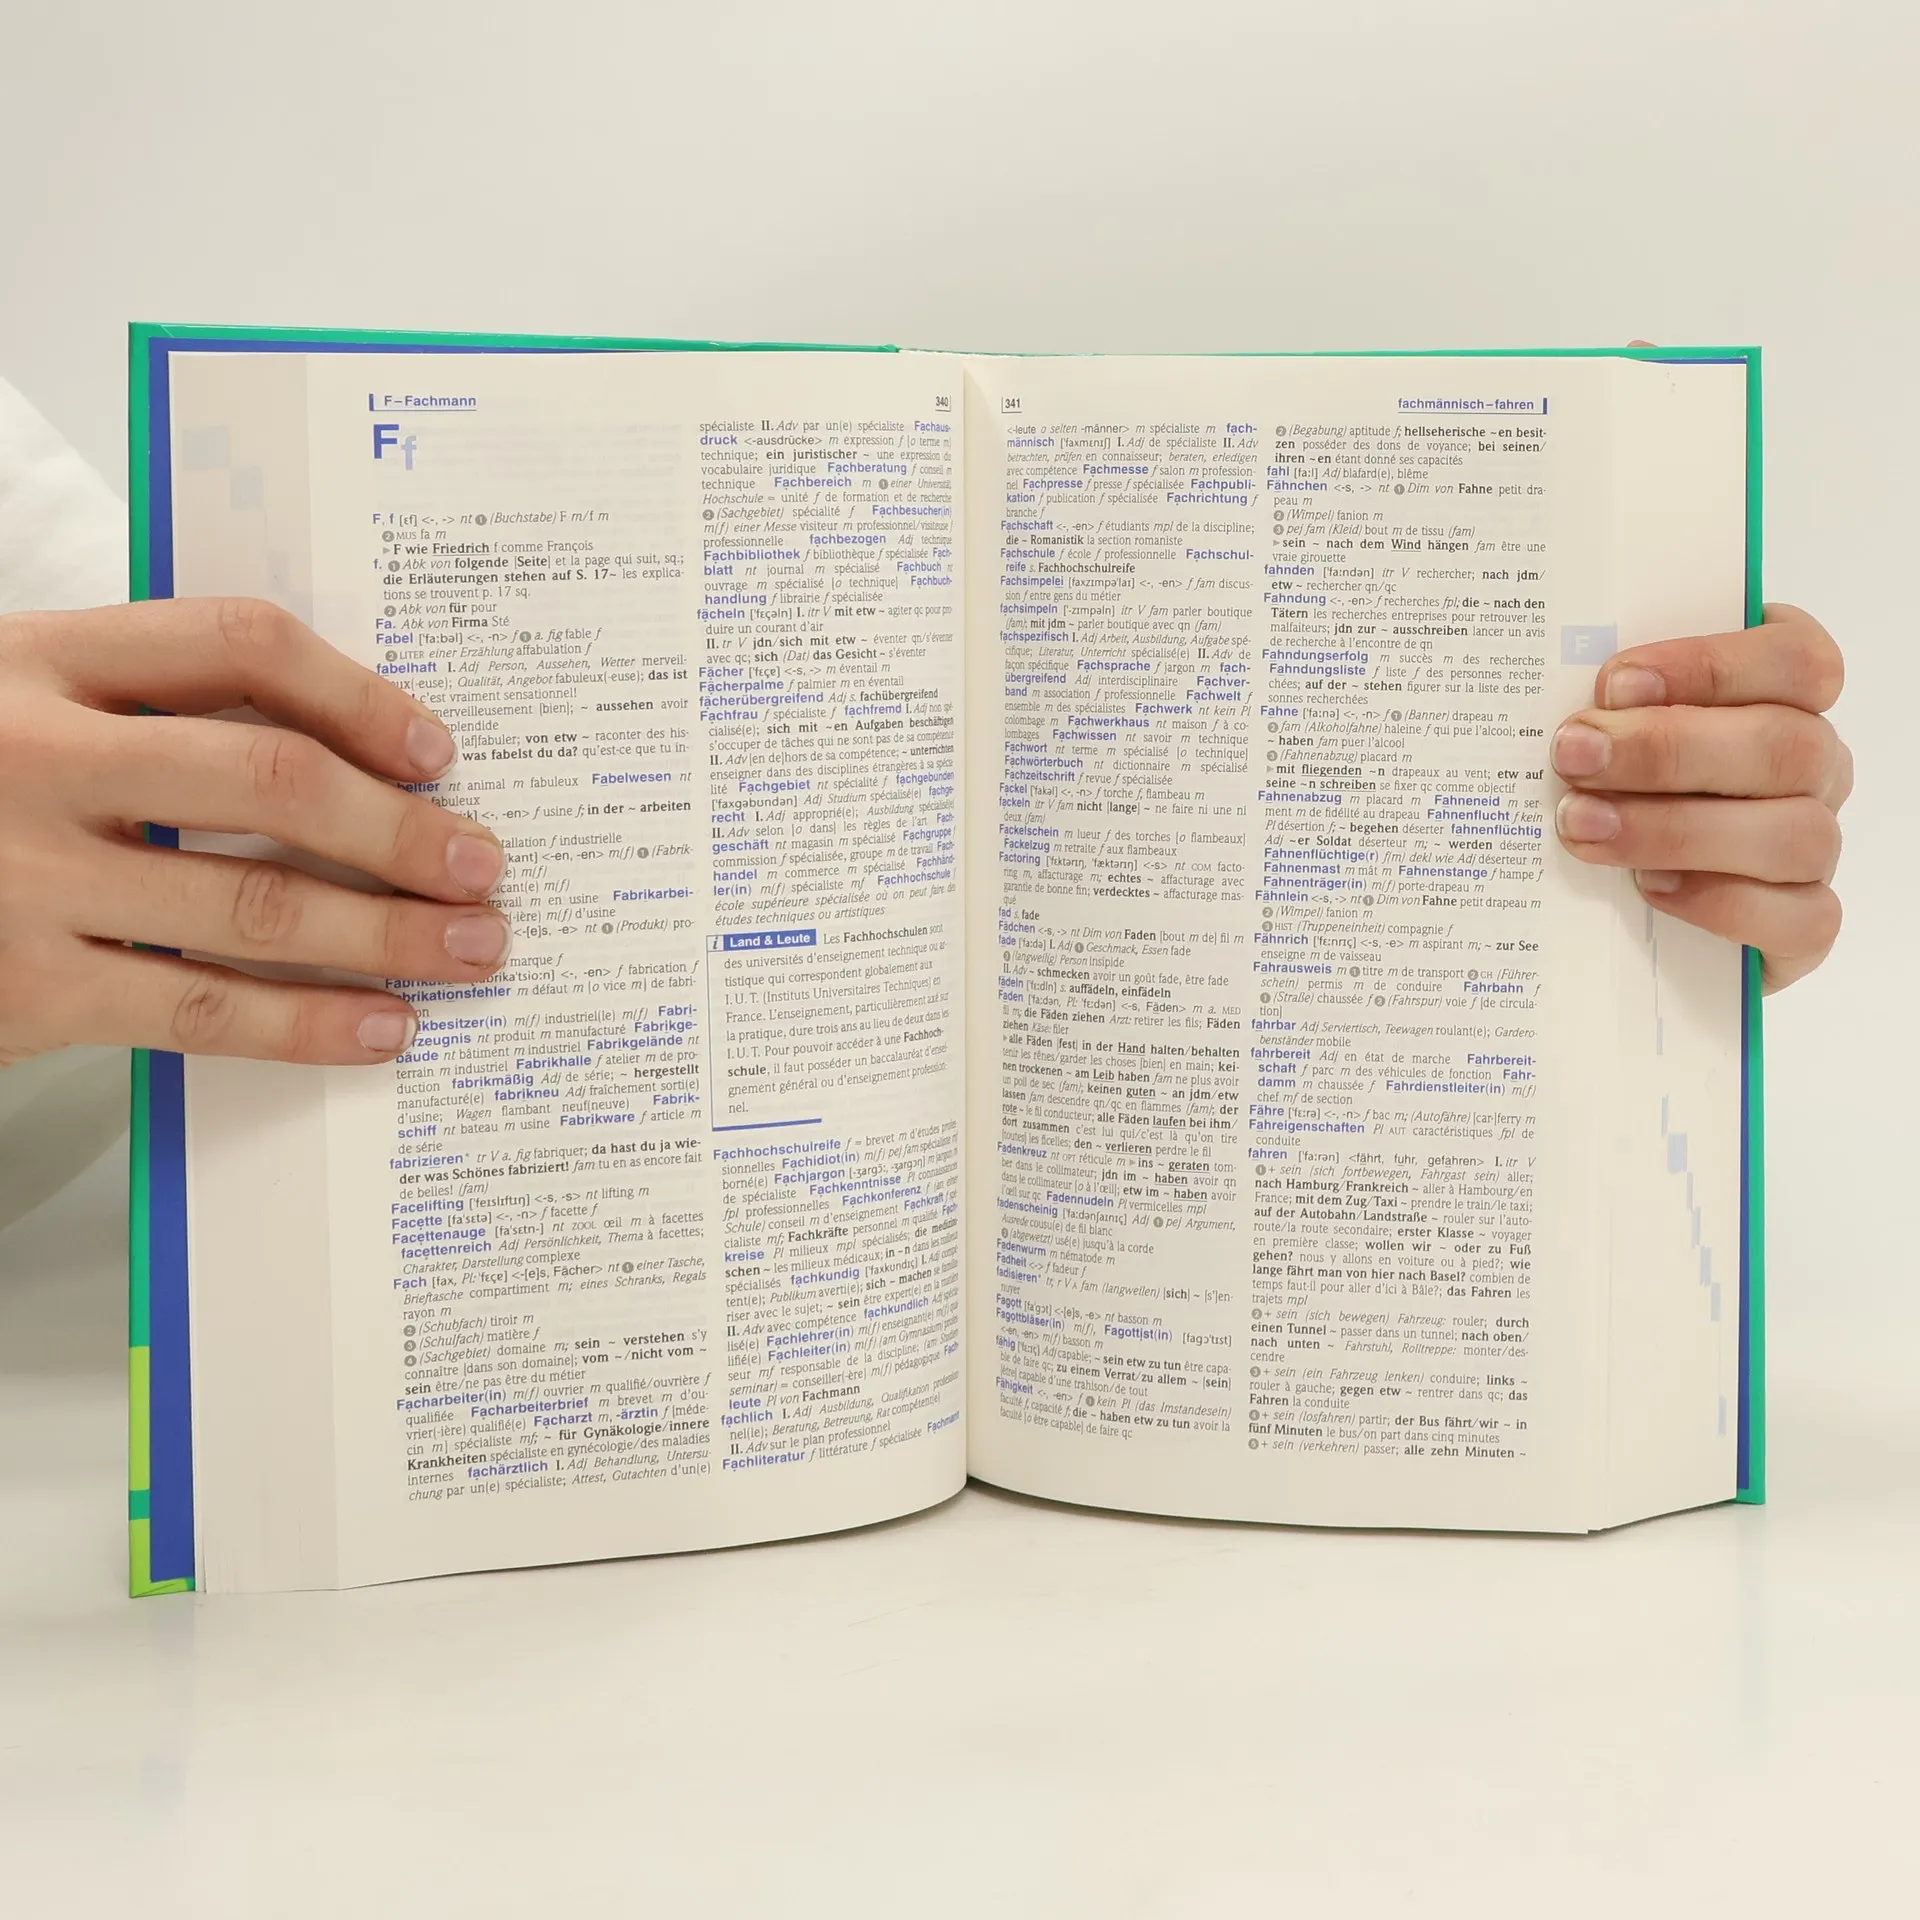 F–Fachmann
340
F f
F, f [ɛf] <-, -> nt ❶ (Buchstabe) F m/f m
❷ MUS fa m
▸ F wie Friedrich f comme François
f. ❶ Abk von folgende [Seite] et la page qui suit, sq.;
die Erläuterungen stehen auf S. 17~ les explica-
tions se trouvent p. 17 sq.
❷ Abk von für pour
Fa. Abk von Firma Sté
Fabel ['fa:bəl] <-, -n> f ❶ a. fig fable f
❷ LITER einer Erzählung affabulation f
fabelhaft I. Adj Person, Aussehen, Wetter merveil-
eux(-euse); Qualität, Angebot fabuleux(-euse); das ist
c'est vraiment sensationnel!
merveilleusement [bien]; ~ aussehen avoir
splendide
[af]fabuler; von etw ~ raconter des his-
was fabelst du da? qu'est-ce que tu in-
animal m fabuleux Fabelwesen nt
fabuleux
<-, -en> f usine f; in der ~ arbeiten
f industrielle
<-en, -en> m(f) ❶ (Fabrik-
m(f)
m(f)
travail m en usine Fabrikarbei-
m(f) d'usine
<-[e]s, -e> nt ❶ (Produkt) pro-
marque f
<-, -en> f fabrication f
m défaut m [o vice m] de fabri-
m(f) industriel(le) m(f) Fabri-
nt produit m manufacturé Fabrikge-
bäude nt bâtiment m industriel Fabrikgelände nt
terrain m industriel Fabrikhalle f atelier m de pro-
duction fabrikmäßig Adj de série; ~ hergestellt
manufacturé(e) fabrikneu Adj fraîchement sorti(e)
d'usine; Wagen flambant neuf(neuve) Fabrik-
schiff nt bateau m usine Fabrikware f article m
de série
fabrizieren* tr V a. fig fabriquer; da hast du ja wie-
der was Schönes fabriziert! fam tu en as encore fait
de belles! (fam)
Facelifting ['feɪslɪftɪŋ] <-s, -s> nt lifting m
Facette [fa'sɛtə] <-, -n> f facette f
Facettenauge [fa'sɛtn-] nt ZOOL œil m à facettes
facettenreich Adj Persönlichkeit, Thema à facettes;
Charakter, Darstellung complexe
Fach [fax, Pl: 'fɛçɐ] <-[e]s, Fächer> nt ❶ einer Tasche,
Brieftasche compartiment m; eines Schranks, Regals
rayon m
❷ (Schubfach) tiroir m
❸ (Schulfach) matière f
❹ (Sachgebiet) domaine m; sein ~ verstehen s'y
connaître [dans son domaine]; vom ~/nicht vom ~
sein être/ne pas être du métier
Facharbeiter(in) m(f) ouvrier m qualifié/ouvrière f
qualifiée Facharbeiterbrief m brevet m d'ou-
vrier(-ière) qualifié(e) Facharzt m, -ärztin f [méde-
cin m] spécialiste mf; ~ für Gynäkologie/innere
Krankheiten spécialiste en gynécologie/des maladies
internes fachärztlich I. Adj Behandlung, Untersu-
chung par un(e) spécialiste; Attest, Gutachten d'un(e)
spécialiste II. Adv par un(e) spécialiste Fachaus-
druck <-ausdrücke> m expression f [o terme m]
technique; ein juristischer ~ une expression du
vocabulaire juridique Fachberatung f conseil m
technique Fachbereich m ❶ einer Universität,
Hochschule = unité f de formation et de recherche
❷ (Sachgebiet) spécialité f Fachbesucher(in)
m(f) einer Messe visiteur m professionnel/visiteuse f
professionnelle fachbezogen Adj technique
Fachbibliothek f bibliothèque f spécialisée Fach-
blatt nt journal m spécialisé Fachbuch nt
ouvrage m spécialisé [o technique] Fachbuch-
handlung f librairie f spécialisée
fächeln ['fɛçəln] I. itr V mit etw ~ agiter qc pour pro-
duire un courant d'air
II. tr V jdn/sich mit etw ~ éventer qn/s'éventer
avec qc; sich (Dat) das Gesicht ~ s'éventer
Fächer ['fɛçɐ] <-s, -> m éventail m
Fächerpalme f palmier m en éventail
fächerübergreifend Adj s. fachübergreifend
Fachfrau f spécialiste f fachfremd I. Adj non spé-
cialisé(e); sich mit ~en Aufgaben beschäftigen
s'occuper de tâches qui ne sont pas de sa compétence
II. Adv [en de]hors de sa compétence; ~ unterrichten
enseigner dans des disciplines étrangères à sa spécia-
lité Fachgebiet nt spécialité f fachgebunden
['faxgəbundən] Adj Studium spécialisé(e) fachge-
recht I. Adj approprié(e); Ausbildung spécialisé(e)
II. Adv selon [o dans] les règles de l'art Fach-
geschäft nt magasin m spécialisé Fachgruppe f
commission f spécialisée, groupe m de travail Fach-
handel m commerce m spécialisé Fachhänd-
ler(in) m(f) spécialiste mf Fachhochschule f
école supérieure spécialisée où on peut faire des
études techniques ou artistiques
i Land & Leute Les Fachhochschulen sont
des universités d'enseignement technique ou ar-
tistique qui correspondent globalement aux
I.U.T. (Instituts Universitaires Techniques) en
France. L'enseignement, particulièrement axé sur
la pratique, dure trois ans au lieu de deux dans les
I.U.T. Pour pouvoir accéder à une Fachhoch-
schule, il faut posséder un baccalauréat d'ensei-
gnement général ou d'enseignement profession-
nel.
Fachhochschulreife f = brevet m d'études profes-
sionnelles Fachidiot(in) m(f) pej fam spécialiste mf
borné(e) Fachjargon m jargon m
de spécialiste Fachkenntnisse Pl connaissances
fpl professionnelles Fachkonferenz f (an einer
Schule) conseil m d'enseignement Fachkraft f spé-
cialiste mf; Fachkräfte personnel m qualifié Fach-
kreise Pl milieux mpl spécialisés; die medizini-
schen ~ les milieux médicaux; in ~n dans les milieux
spécialisés fachkundig ['faxkundɪç] I. Adj compé-
tent(e); Publikum averti(e); sich ~ machen se famila-
riser avec le sujet; ~ sein être expert(e) en la matière
II. Adv avec compétence fachkundlich Adj spécia-
lisé(e) Fachlehrer(in) m(f) enseignant(e) m(f) qua-
lifié(e) Fachleiter(in) m(f) (am Gymnasium) profes-
seur mf responsable de la discipline; (am Studien-
seminar) = conseiller(-ère) m(f) pédagogique Fach-
leute Pl von Fachmann
fachlich I. Adj Ausbildung, Qualifikation profession-
nel(le); Beratung, Betreuung, Rat compétent(e)
II. Adv sur le plan professionnel
Fachliteratur f littérature f spécialisée Fachmann
341
fachmännisch–fahren
<-leute o selten -männer> m spécialiste m fach-
männisch ['faxmɛnɪʃ] I. Adj de spécialiste II. Adv
betrachten, prüfen en connaisseur; beraten, erledigen
avec compétence Fachmesse f salon m profession-
nel Fachpresse f presse f spécialisée Fachpubli-
kation f publication f spécialisée Fachrichtung f
branche f
Fachschaft <-, -en> f étudiants mpl de la discipline;
die ~ Romanistik la section romaniste
Fachschule f école f professionnelle Fachschul-
reife s. Fachhochschulreife
Fachsimpelei [faxzɪmpə'laɪ] <-, -en> f fam discus-
sion f entre gens du métier
fachsimpeln ['-zɪmpəln] itr V fam parler boutique
(fam); mit jdm ~ parler boutique avec qn (fam)
fachspezifisch I. Adj Arbeit, Ausbildung, Aufgabe spé-
cifique; Literatur, Unterricht spécialisé(e) II. Adv de
façon spécifique Fachsprache f jargon m fach-
übergreifend Adj interdisciplinaire Fachver-
band m association f professionnelle Fachwelt f
ensemble m des spécialistes Fachwerk nt kein Pl
colombage m Fachwerkhaus nt maison f à co-
lombages Fachwissen nt savoir m technique
Fachwort nt terme m spécialisé [o technique]
Fachwörterbuch nt dictionnaire m spécialisé
Fachzeitschrift f revue f spécialisée
Fackel ['fakəl] <-, -n> f torche f, flambeau m
fackeln itr V fam nicht [lange] ~ ne faire ni une ni
deux (fam)
Fackelschein m lueur f des torches [o flambeaux]
Fackelzug m retraite f aux flambeaux
Factoring ['fɛktərɪŋ, 'fæktərɪŋ] <-s> nt COM facto-
ring m, affacturage m; echtes ~ affacturage avec
garantie de bonne fin; verdecktes ~ affacturage mas-
qué
fad s. fade
Fädchen <-s, -> nt Dim von Faden [bout m de] fil m
fade ['fa:də] I. Adj ❶ Geschmack, Essen fade
❷ (langweilig) Person insipide
II. Adv ~ schmecken avoir un goût fade, être fade
fädeln ['fɛ:dln] s. auffädeln, einfädeln
Faden ['fa:dən, Pl: 'fɛ:dən] <-s, Fäden> m a. MED
fil m; die Fäden ziehen Arzt: retirer les fils; Fäden
ziehen Käse: filer
▸ alle Fäden [fest] in der Hand halten/behalten
tenir les rênes/garder les choses [bien] en main; kei-
nen trockenen ~ am Leib haben fam ne plus avoir
un poil de sec (fam); keinen guten ~ an jdm/etw
lassen fam descendre qn/qc en flammes (fam); der
rote ~ le fil conducteur; alle Fäden laufen bei ihm/
dort zusammen c'est lui qui/c'est là qu'on tire
[toutes] les ficelles; den ~ verlieren perdre le fil
Fadenkreuz nt OPT réticule m ▸ ins ~ geraten tom-
ber dans le collimateur; jdn im ~ haben avoir qn
dans le collimateur [o à l'œil]; etw im ~ haben avoir
l'œil sur qc Fadennudeln Pl vermicelles mpl
fadenscheinig ['fa:dənʃaɪnɪç] Adj ❶ pej Argument,
Ausrede cousu(e) de fil blanc
❷ (abgewetzt) usé(e) jusqu'à la corde
Fadenwurm m nématode m
Fadheit <-> f fadeur f
fadisieren* tr, r V A fam (langweilen) [sich] ~ [s']en-
nuyer
Fagott [fa'gɔt] <-[e]s, -e> nt basson m
Fagottbläser(in) m(f), Fagottist(in) [fagɔ'tɪst]
<-en, -en> m(f) basson m
fähig ['fɛ:ɪç] Adj capable; ~ sein etw zu tun être capa-
ble de faire qc; zu einem Verrat/zu allem ~ [sein]
[être] capable d'une trahison/de tout
Fähigkeit <-, -en> f ❶ kein Pl (das Imstandesein)
faculté f, capacité f; die ~ haben etw zu tun avoir la
faculté [o être capable] de faire qc
❷ (Begabung) aptitude f; hellseherische ~en besit-
zen posséder des dons de voyance; bei seinen/
ihren ~en étant donné ses capacités
fahl [fa:l] Adj blafard(e), blême
Fähnchen <-s, -> nt ❶ Dim von Fahne petit dra-
peau m
❷ (Wimpel) fanion m
❸ pej fam (Kleid) bout m de tissu (fam)
▸ sein ~ nach dem Wind hängen fam être une
vraie girouette
fahnden ['fa:ndən] itr V rechercher; nach jdm/
etw ~ rechercher qn/qc
Fahndung <-, -en> f recherches fpl; die ~ nach den
Tätern les recherches entreprises pour retrouver les
malfaiteurs; jdn zur ~ ausschreiben lancer un avis
de recherche à l'encontre de qn
Fahndungserfolg m succès m des recherches
Fahndungsliste f liste f des personnes recher-
chées; auf der ~ stehen figurer sur la liste des per-
sonnes recherchées
Fahne ['fa:nə] <-, -n> f ❶ (Banner) drapeau m
❷ fam (Alkoholfahne) haleine f qui pue l'alcool; eine
~ haben fam puer l'alcool
❸ (Fahnenabzug) placard m
▸ mit fliegenden ~n drapeaux au vent; etw auf
seine ~n schreiben se fixer qc comme objectif
Fahnenabzug m placard m Fahneneid m ser-
ment m de fidélité au drapeau Fahnenflucht f kein
Pl désertion f; ~ begehen déserter fahnenflüchtig
Adj ~er Soldat déserteur m; ~ werden déserter
Fahnenflüchtige(r) f(m) dekl wie Adj déserteur m
Fahnenmast m mât m Fahnenstange f hampe f
Fahnenträger(in) m(f) porte-drapeau m
Fähnlein <-s, -> nt ❶ Dim von Fahne petit drapeau m
❷ (Wimpel) fanion m
❸ HIST (Truppeneinheit) compagnie f
Fähnrich ['fɛ:nrɪç] <-s, -e> m aspirant m; ~ zur See
enseigne m de vaisseau
Fahrausweis m ❶ titre m de transport ❷ CH (Führer-
schein) permis m de conduire Fahrbahn f
❶ (Straße) chaussée f ❷ (Fahrspur) voie f [de circula-
tion]
fahrbar Adj Serviertisch, Teewagen roulant(e); Gardero-
benständer mobile
fahrbereit Adj en état de marche Fahrbereit-
schaft f parc m des véhicules de fonction Fahr-
damm m chaussée f Fahrdienstleiter(in) m(f)
chef mf de section
Fähre ['fɛ:rə] <-, -n> f bac m; (Autofähre) [car-]ferry m
Fahreigenschaften Pl AUT caractéristiques fpl de
conduite
fahren ['fa:rən] <fährt, fuhr, gefahren> I. itr V
❶ + sein (sich fortbewegen, Fahrgast sein) aller;
nach Hamburg/Frankreich ~ aller à Hambourg/en
France; mit dem Zug/Taxi ~ prendre le train/le taxi;
auf der Autobahn/Landstraße ~ rouler sur l'auto-
route/la route secondaire; erster Klasse ~ voyager
en première classe; wollen wir ~ oder zu Fuß
gehen? nous y allons en voiture ou à pied?; wie
lange fährt man von hier nach Basel? combien de
temps faut-il pour aller d'ici à Bâle?; das Fahren les
trajets mpl
❷ + sein (sich bewegen) Fahrzeug: rouler; durch
einen Tunnel ~ passer dans un tunnel; nach oben/
nach unten ~ Fahrstuhl, Rolltreppe: monter/des-
cendre
❸ + sein (ein Fahrzeug lenken) conduire; links ~
rouler à gauche; gegen etw ~ rentrer dans qc; das
Fahren la conduite
❹ + sein (losfahren) partir; der Bus fährt/wir ~ in
fünf Minuten le bus/on part dans cinq minutes
❺ + sein (verkehren) passer; alle zehn Minuten ~
F